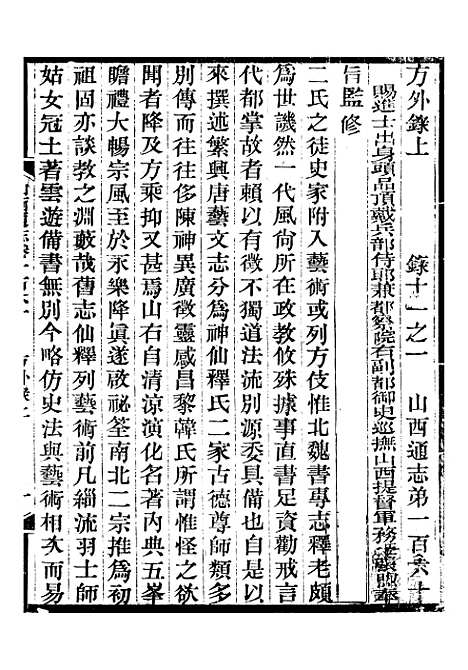 方外錄上　錄十一之一　山西通志弟一百六十
賜進士出身頭品頂戴兵部侍郎兼都察院右副都御史巡撫山西提督軍務 奉
旨監修
二氏之徒史家附入藝術或列方伎惟北魏書專志釋老頗
爲世譏然一代風尙所在政教攸殊據事直書足資勸戒古
代都掌故者賴以有徵不獨道法流別源委具備也隋唐以
來撰述繁興唐藝文志分爲神仙釋氏二家古德尊師類多
別傳而史乃侈陳神異廣徵靈感昌黎韓氏所謂惟怪之欲
聞者降及方乘抑又甚焉山右自清涼演化名著内典五峯
瞻禮大暢宗風至於永樂降眞遂啟祕筌南北二宗推爲初
祖固亦談教之淵藪哉舊志仙釋列藝術前凡緇流羽士師
姑女冠土著雲遊備書無別今略仿史法與藝術相次而易